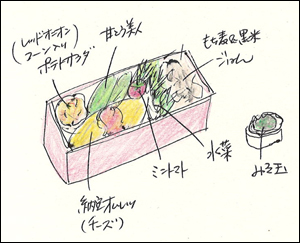 (レッドオニオン
コーン入り
ポテトサラダ
甘とう美人
もち麦&黒米
ごはん
納豆オムレツ
(チーズ)
ミニトマト
水菜
みそ玉